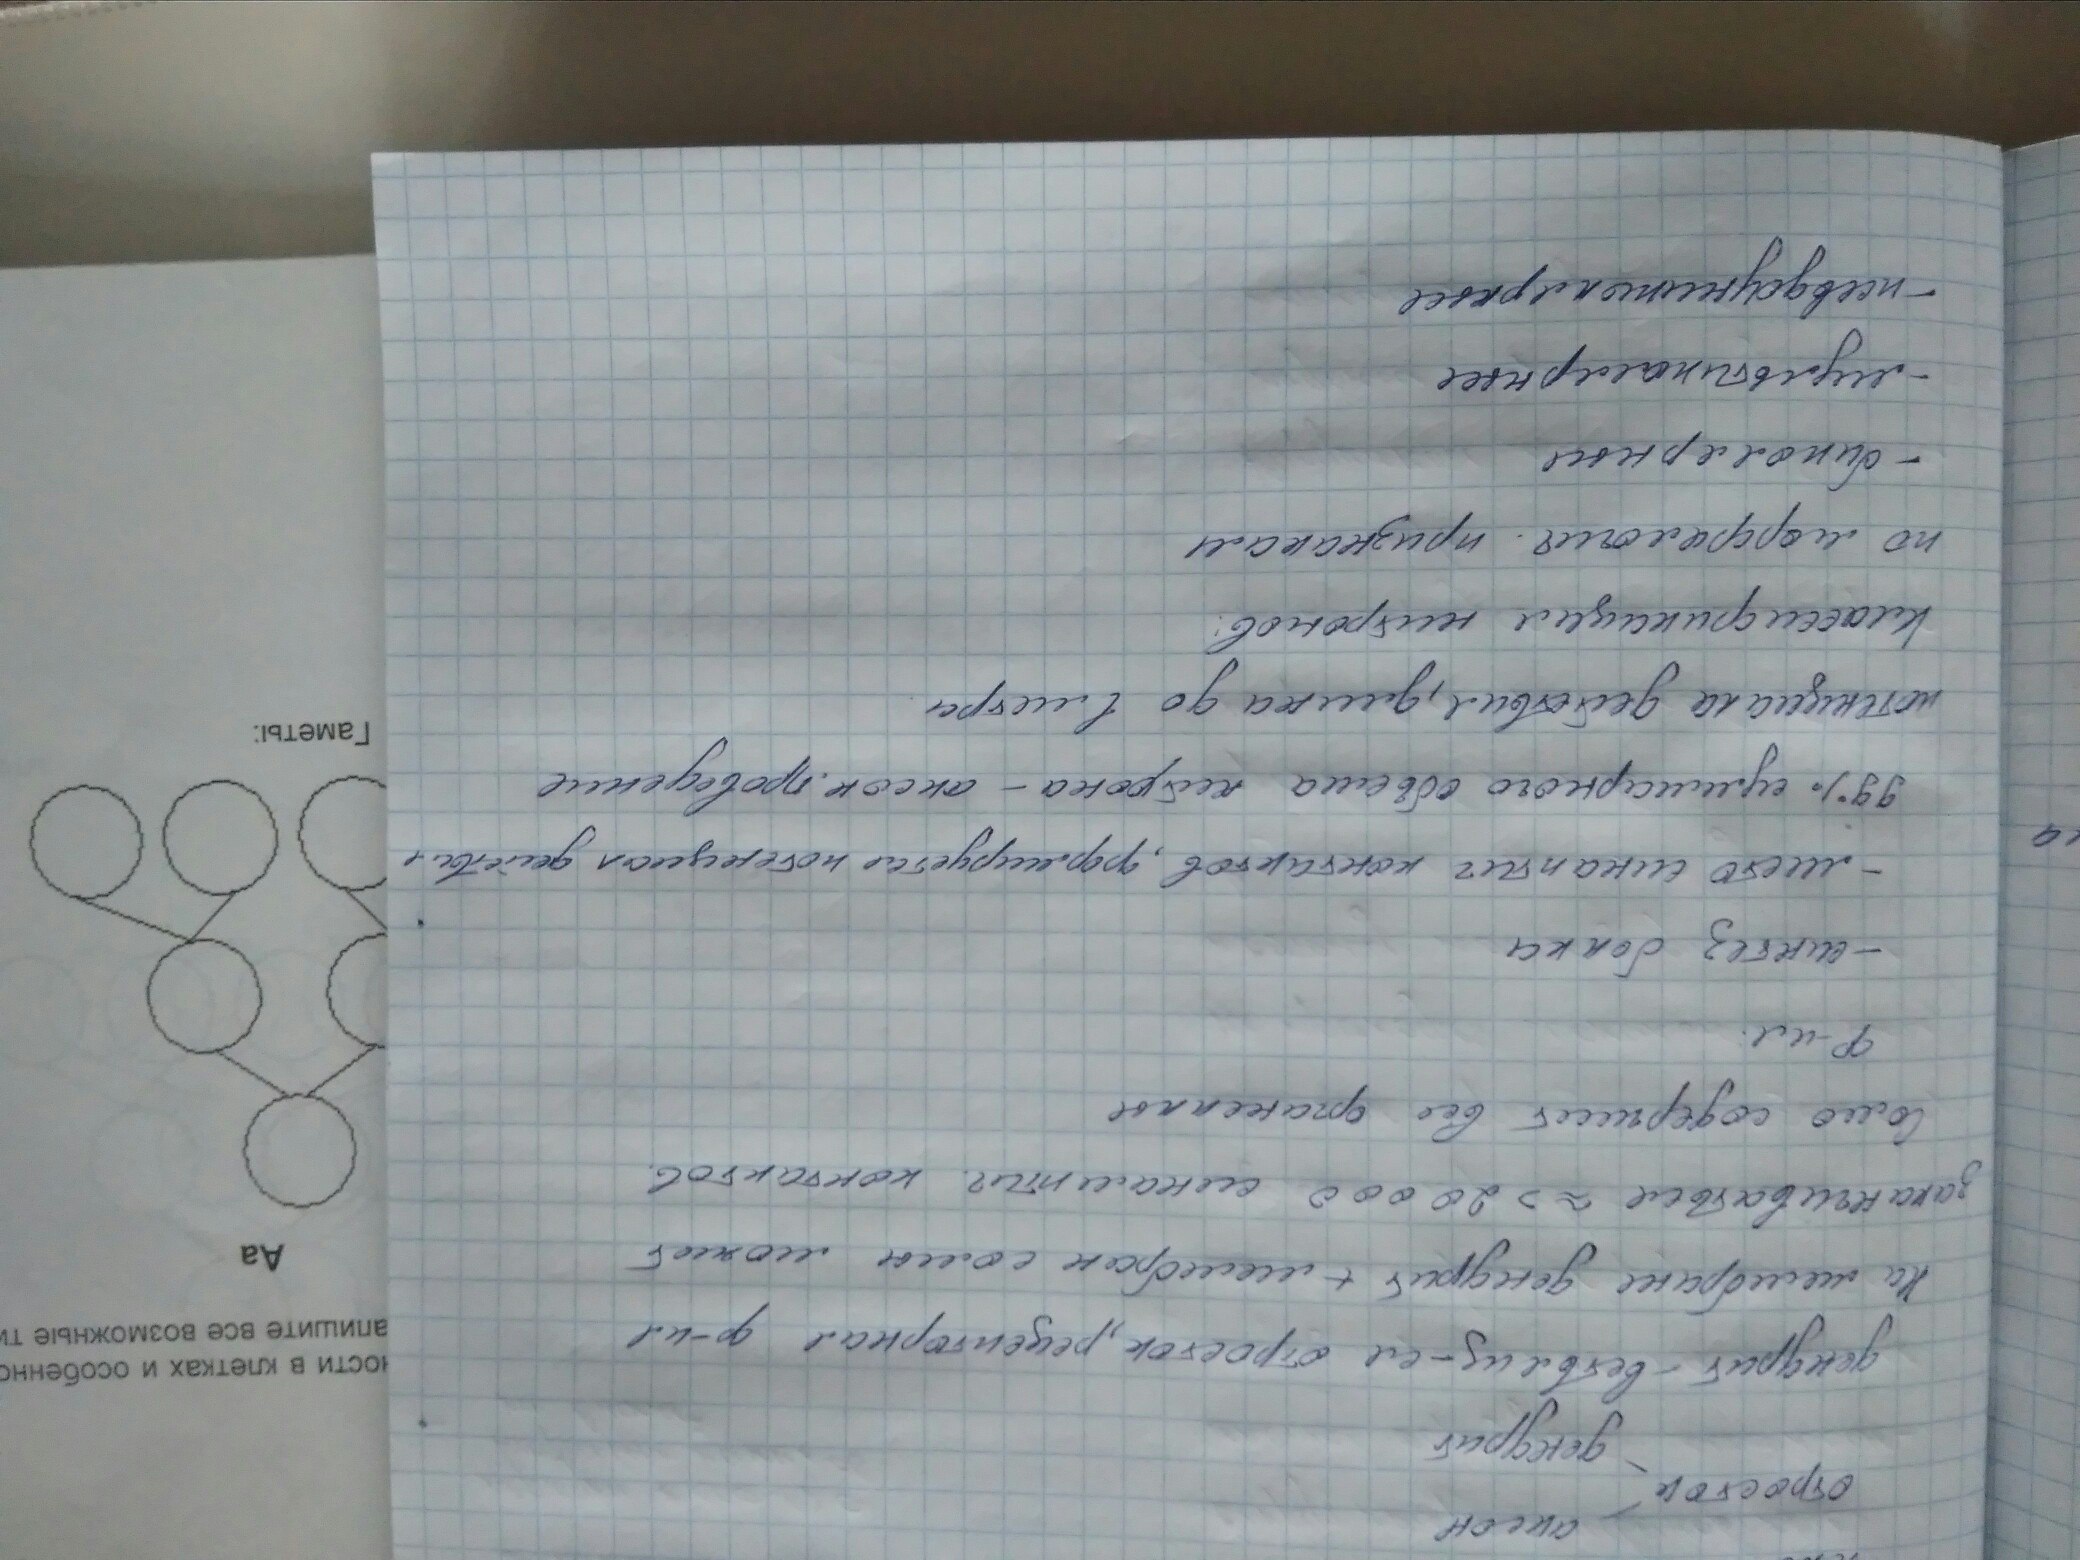 аксон
отросток
дендрит
дендрит - ветвлящ-ся отросток, рецепторная ф-ия
На мембране дендрит + мембран сомы может
заканчиваться ≈ > 20 000 синаптич. контактов.
Сомо содержит все органеллы
Ф-ия:
- синтез белка
- место синаптич контактов, формируется потенциал действия
99% суммарного объема нейрона - аксон. Проведение
потенциала действия, длина до 1 метра
Классификация нейронов:
по морфологич. признакам
- биполярные
- мультиполярные
- псевдоуниполярные
ности в клетках и особенно
апишите все возможные ти
Аа
Гаметы: